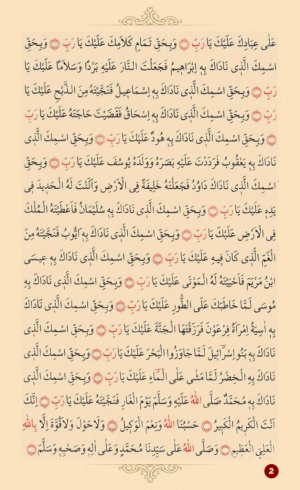 عَلٰى عِبَادِكَ عَلَيْكَ يَا رَبِّ ۝ وَبِحَقِّ تَمَامِ كَلَامِكَ عَلَيْكَ يَا رَبِّ ۝ وَبِحَقِّ
اسْمِكَ الَّذِي نَادَاكَ بِهِ اِبْرَاهِيمُ فَجَعَلْتَ النَّارَ عَلَيْهِ بَرْدًا وَسَلَامًا عَلَيْكَ يَا
رَبِّ ۝ وَبِحَقِّ اسْمِكَ الَّذِي نَادَاكَ بِهِ اِسْمَاعِيلُ فَنَجَّيْتَهُ مِنَ الذَّبْحِ عَلَيْكَ يَا
رَبِّ ۝ وَبِحَقِّ اسْمِكَ الَّذِي نَادَاكَ بِهِ اِسْحَاقُ فَقَضَيْتَ حَاجَتَهُ عَلَيْكَ يَا رَبِّ
۝ وَبِحَقِّ اسْمِكَ الَّذِي نَادَاكَ بِهِ هُودٌ عَلَيْكَ يَا رَبِّ ۝ وَبِحَقِّ اسْمِكَ الَّذِي
نَادَاكَ بِهِ يَعْقُوبُ فَرَدَدْتَ عَلَيْهِ بَصَرَهُ وَوَلَدَهُ يُوسُفَ عَلَيْكَ يَا رَبِّ ۝ وَبِحَقِّ
اسْمِكَ الَّذِي نَادَاكَ دَاوُدُ فَجَعَلْتَهُ خَلِيفَةً فِي الْاَرْضِ وَاَلَنْتَ لَهُ الْحَدِيدَ فِي
يَدِهِ عَلَيْكَ يَا رَبِّ ۝ وَبِحَقِّ اسْمِكَ الَّذِي نَادَاكَ بِهِ سُلَيْمَانُ فَاَعْطَيْتَهُ الْمُلْكَ
فِي الْاَرْضِ عَلَيْكَ يَا رَبِّ ۝ وَبِحَقِّ اسْمِكَ الَّذِي نَادَاكَ بِهِ اَيُّوبُ فَنَجَّيْتَهُ مِنَ
الْغَمِّ الَّذِي كَانَ فِيهِ عَلَيْكَ يَا رَبِّ ۝ وَبِحَقِّ اسْمِكَ الَّذِي نَادَاكَ بِهِ عِيسَى
ابْنُ مَرْيَمَ فَاَحْيَيْتَ لَهُ الْمَوْتٰى عَلَيْكَ يَا رَبِّ ۝ وَبِحَقِّ اسْمِكَ الَّذِي نَادَاكَ بِهِ
مُوسَى لَمَّا خَاطَبَكَ عَلَى الطُّورِ عَلَيْكَ يَا رَبِّ ۝ وَبِحَقِّ اسْمِكَ الَّذِي نَادَاكَ
بِهِ اٰسِيَةُ امْرَاَةُ فِرْعَوْنَ فَرَزَقْتَهَا الْجَنَّةَ عَلَيْكَ يَا رَبِّ ۝ وَبِحَقِّ اسْمِكَ الَّذِي
نَادَاكَ بِهِ بَنُو اِسْرَائِيلَ لَمَّا جَاوَزُوا الْبَحْرَ عَلَيْكَ يَا رَبِّ ۝ وَبِحَقِّ اسْمِكَ الَّذِي
نَادَاكَ بِهِ الْخِضْرُ لَمَّا مَشٰى عَلَى الْمَاءِ عَلَيْكَ يَا رَبِّ ۝ وَبِحَقِّ اسْمِكَ الَّذِي
نَادَاكَ بِهِ مُحَمَّدٌ صَلَّى اللهُ عَلَيْهِ وَسَلَّمَ يَوْمَ الْغَارِ فَنَجَّيْتَهُ عَلَيْكَ يَا رَبِّ ۝ اِنَّكَ
اَنْتَ الْكَرِيمُ الْكَبِيرُ ۝ حَسْبُنَا اللهُ وَنِعْمَ الْوَكِيلُ ۝ وَلَا حَوْلَ وَلَا قُوَّةَ اِلَّا بِاللهِ
الْعَلِيِّ الْعَظِيمِ ۝ وَصَلَّى اللهُ عَلٰى سَيِّدِنَا مُحَمَّدٍ وَعَلٰى اٰلِهِ وَصَحْبِهِ وَسَلَّمَ ۝
2